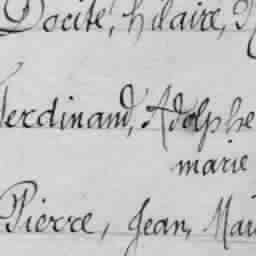 Docité, hilaire,
Ferdinand, Adolphe
marie
Pierre, Jean, Mari